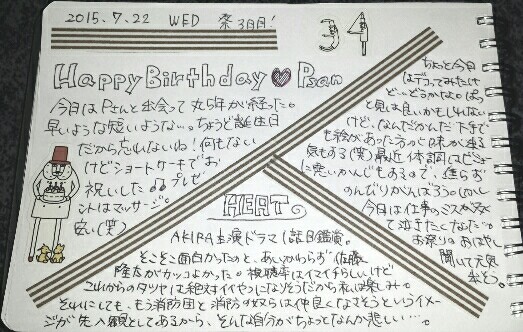 2015.7.22 WED 祭3日目!
34
Happy Birthday ♥ Psan
今日はPさんと出会って丸5年が経った。
早いような短いような…。ちょうど誕生日
だから忘れないね!何もない
けどショートケーキでお
祝いした♪♪プレゼ
ントはマッサージ。
安い(笑)
ちょっと今日
はデコってみたけ
ど…どうかなぁ。ぱっ
と見は良いかもしれない
けど、なんだかんだ下手で
も絵があった方が味が出る
気もする(笑)最近体調はビミョー
に悪いかんじもするので、焦らず
のんびりがんばろう。しかし
今日は仕事のミスが
て泣きたくなった。
お祭りのおはやし
聞いて元気
出そう。
HEAT。
AKIRA主演ドラマ1話目鑑賞。
そこそこ面白かったのと、あいかわらず佐藤
隆太がカッコよかった。視聴率はイマイチらしいけど
これからのタツヤは絶対イイヤツになりそうだから私は楽しみ。
それにしても、もう消防団と消防の奴らは仲良くなさそうというイメー
ジが先入観としてあるから、そんな自分がちょっとなんか悲しい…。